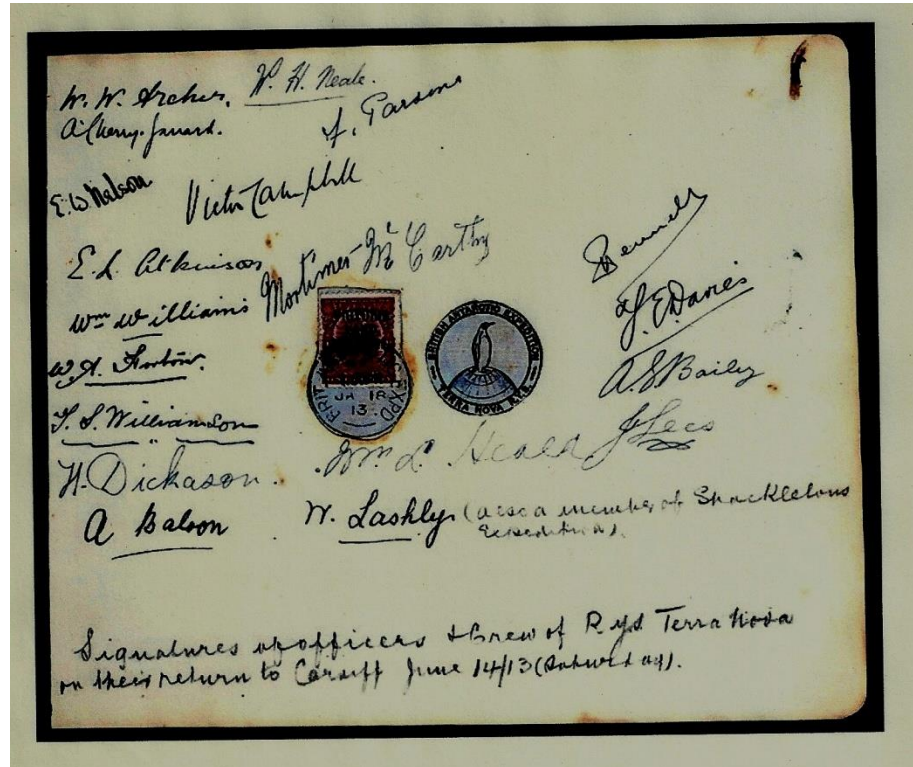 W. W. Archer. W. H. Neale.
A. Cherry-Garrard. F. Parsons
E. W. Nelson Victor Campbell
E. L. Atkinson Mortimer McCarthy
Wm Williams
W. A. Horton.
T. S. Williamson
H. Dickason.
A Balson
Pennell
F. E. Davies
A. S. Bailey
J Lees
Wm. L. Heald
W. Lashly (also a member of Shackletons
Expedition).
BRITISH ANTARCTIC EXPEDITION
TERRA NOVA R.Y.S.
BRIT. EXPD
JA 18
13
Signatures of officers & Crew of R.y.S Terra Nova
on their return to Cardiff June 14/13 (Saturday).